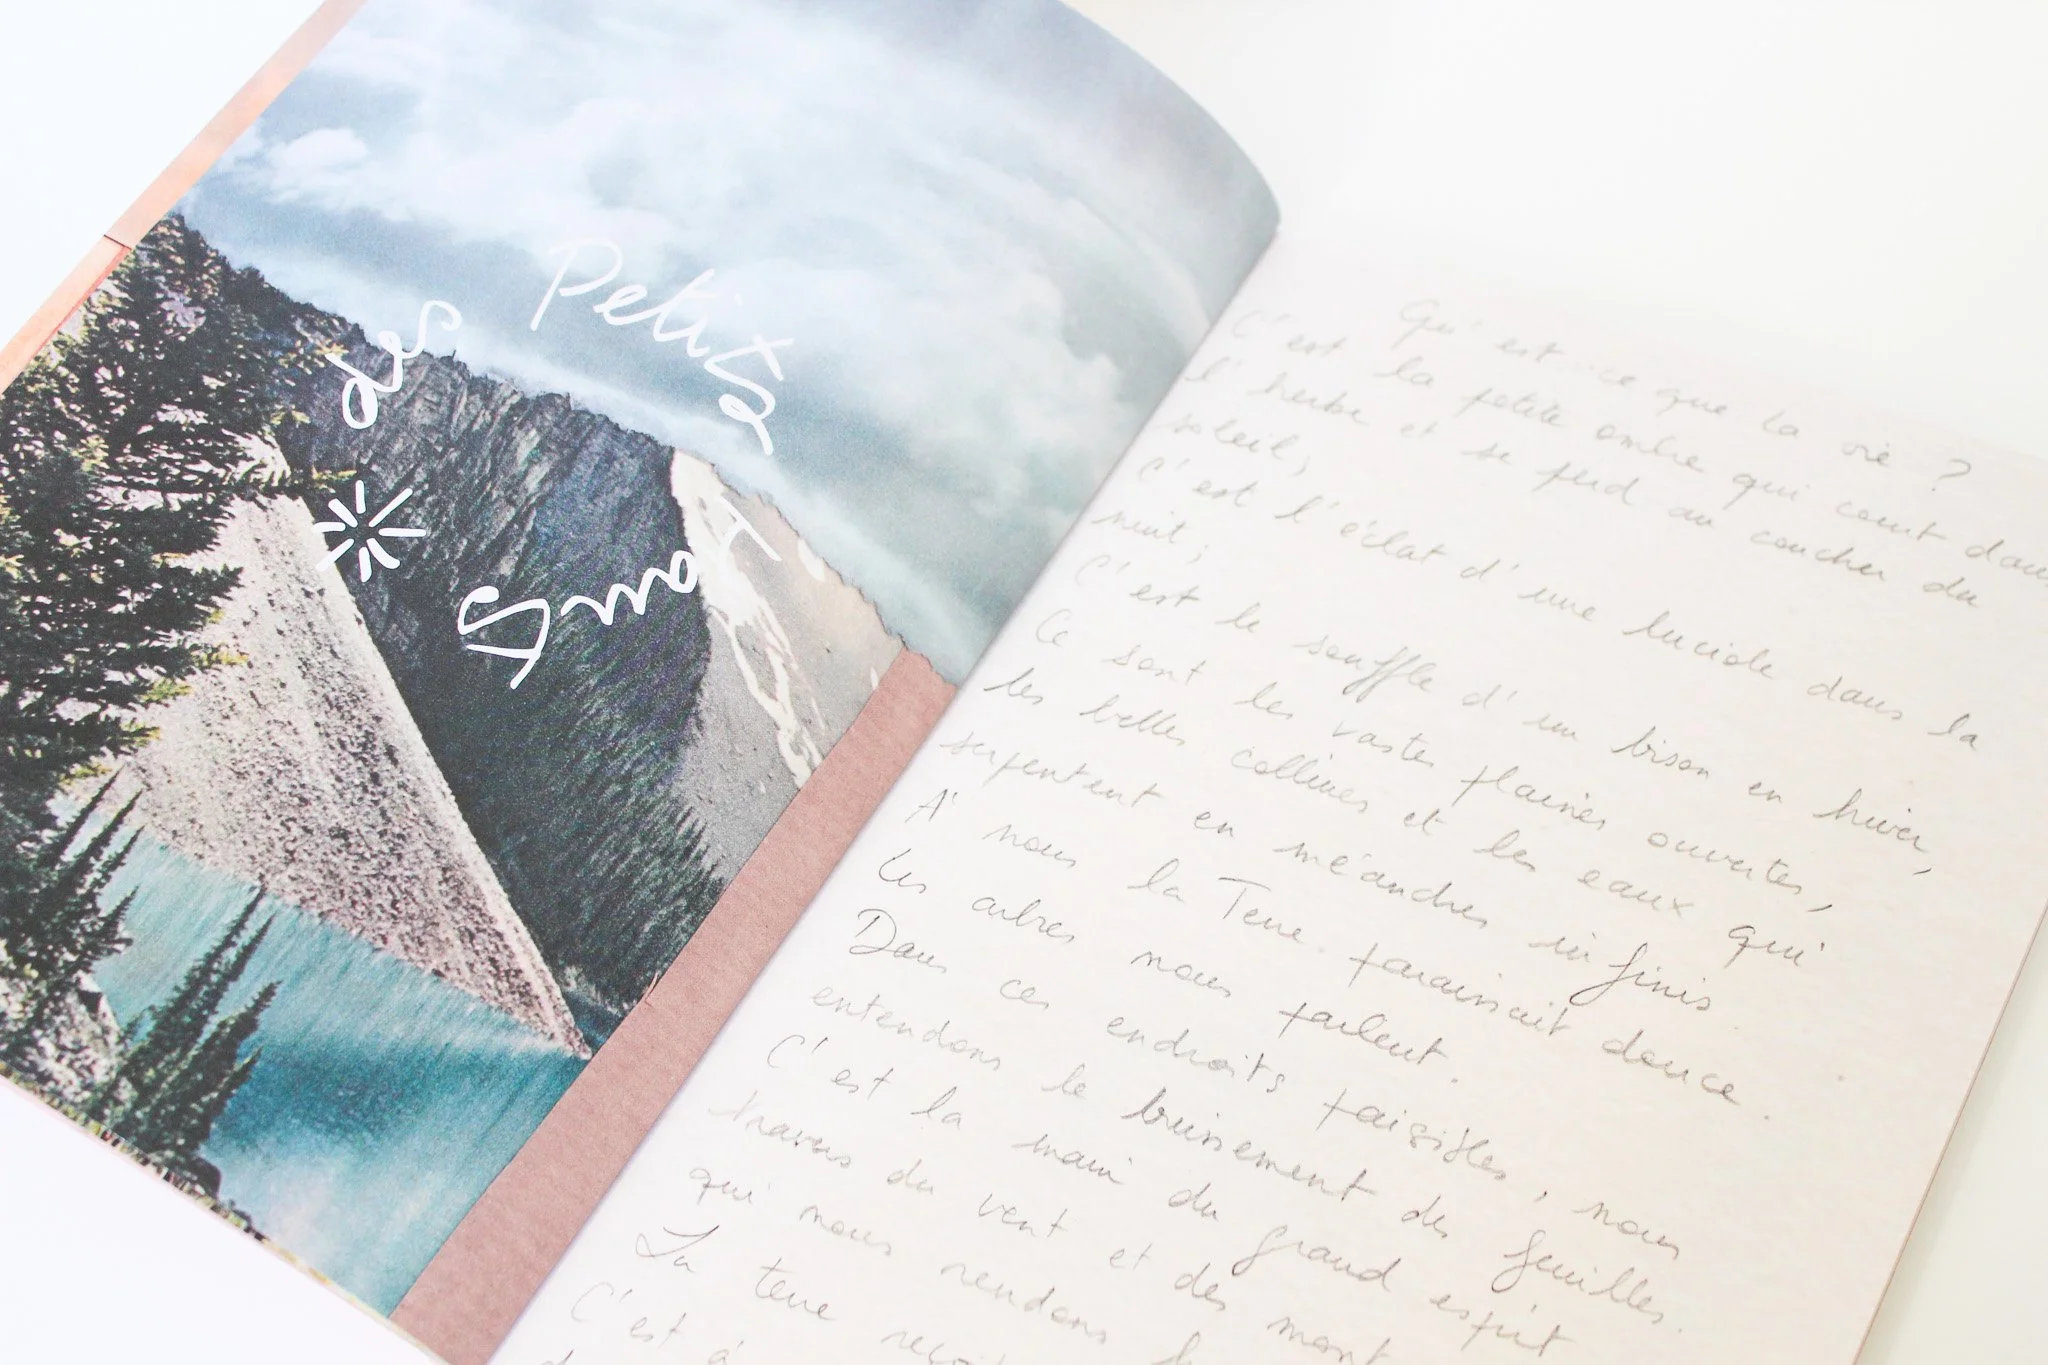 des Petits
Smot
Qu'est-ce que la vie ?
C'est la petite ombre qui court dans
l'herbe et se perd au coucher du
soleil,
C'est l'éclat d'une luciole dans la
nuit,
C'est le souffle d'un bison en hiver,
Ce sont les vastes plaines ouvertes,
les belles collines et les eaux qui
serpentent en méandres infinis.
À nous la Terre paraissait douce.
Les arbres nous parlent.
Dans ces endroits paisibles, nous
entendons le bruissement des feuilles.
C'est la main du grand esprit
travers du vent et des mont
qui nous rendons
La terre reçoit
C'est à